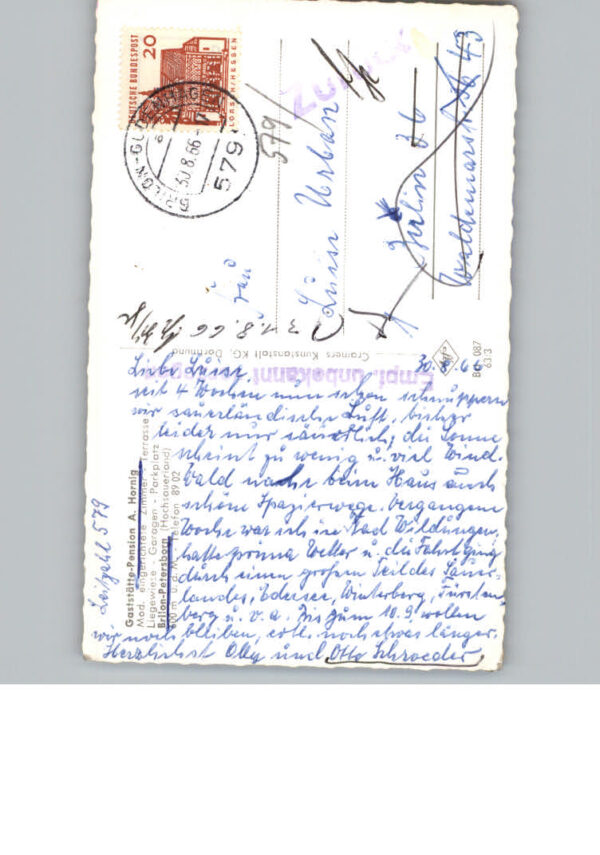 DEUTSCHE BUNDESPOST
20
LORSCH/HESSEN
BRILON-GUDENHAGEN
30.8.66
579
579/
Zurück
Frau
Luise Urban
1 Berlin 36
Waldemarstr. 43
31.8.66
Cramers Kunstanstalt KG, Dortmund
Empf. unbekannt
BO 087
63/3
30.8.66
Liebe Luise,
seit 4 Wochen nun schon schnuppern
wir sauerländische Luft, bisher
leider nur säuerlich, die Sonne
scheint zu wenig u. viel Wind.
Wald nahe beim Haus auch
schöne Spazierwege. Vergangene
Woche war ich in Bad Wildungen,
hatte prima Wetter u. die Fahrt ging
durch einen großen Teil des Sauer-
landes, Edersee, Winterberg, Fürsten-
berg u. v. a. Bis zum 10.9. wollen
wir noch bleiben, evtl. noch etwas länger.
Herzlichst Olly und Otto Schroeder
Leitzahl 579
Gaststätte-Pension A. Hornig
Mod. eingerichtete Zimmer - Terrasse
Liegewiese - Garagen - Parkplatz
Brilon-Petersborn (Hochsauerland)
600 m ü. d. M. - Telefon 89 02